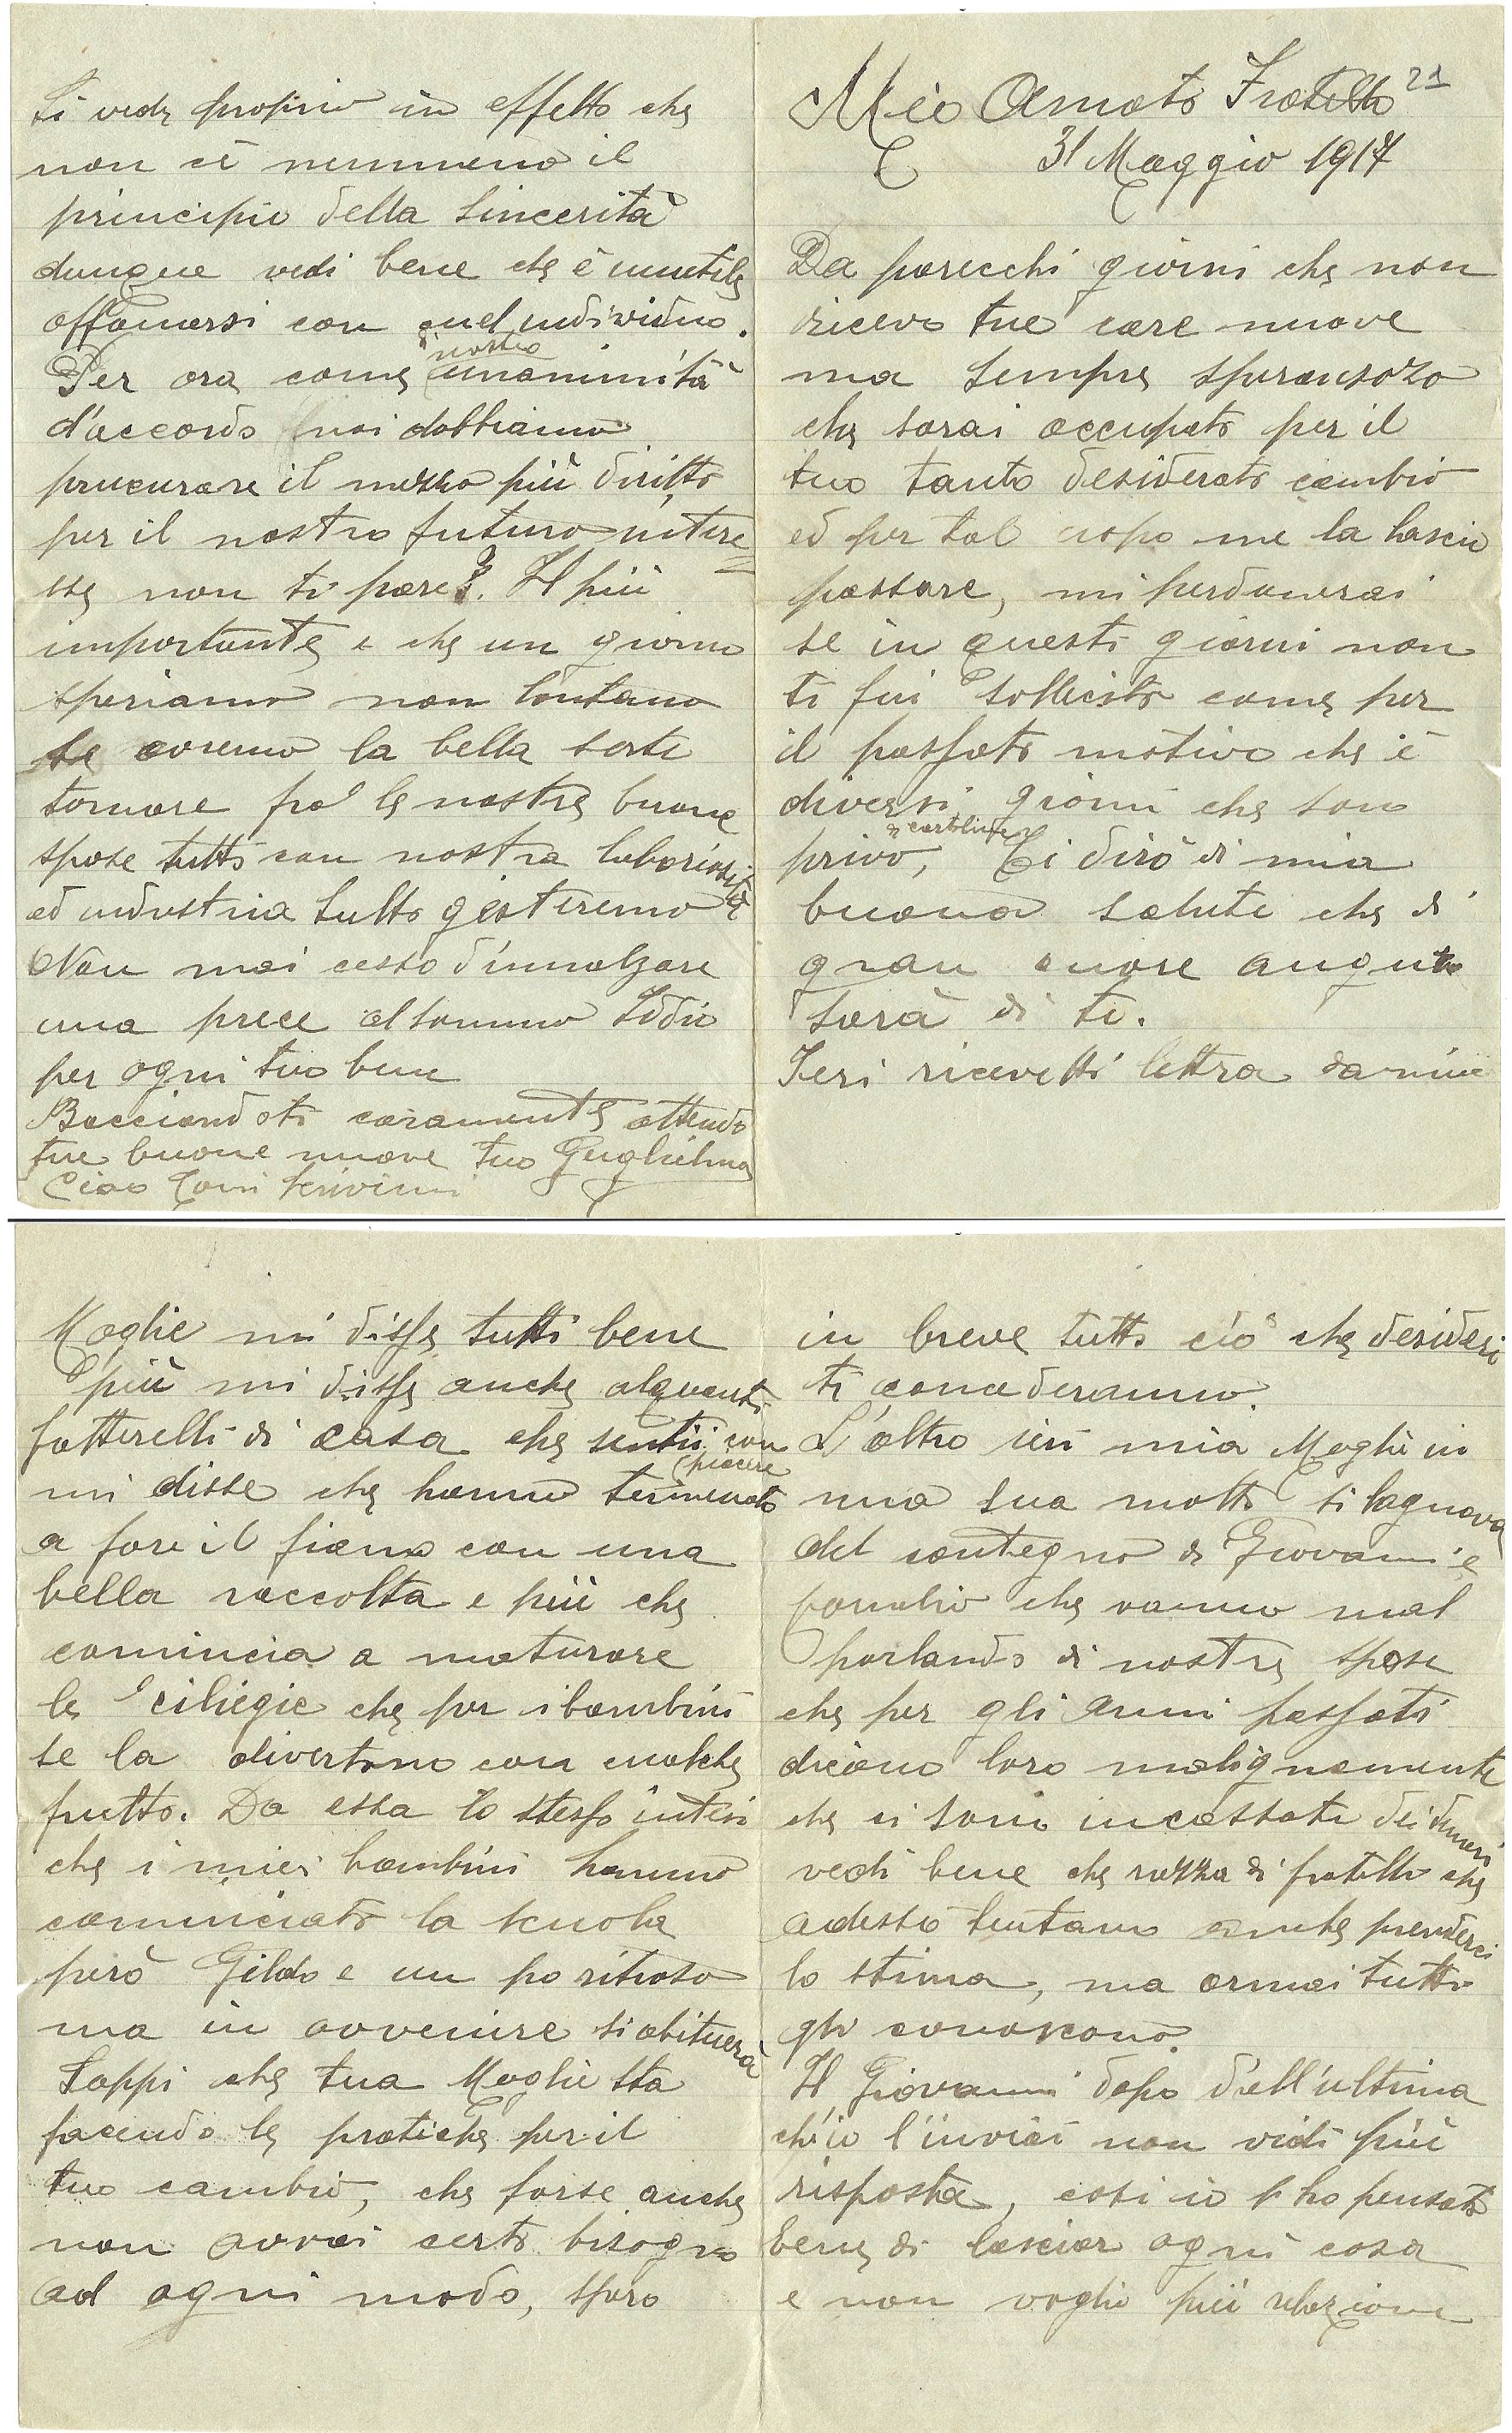 Mio Amato Fratello 21
31 Maggio 1917
Da parecchi giorni che non
ricevo tue care nuove
ma sempre speransozo
che sarai occupato per il
tuo tanto desiderato cambio
ed per tal uopo me la lascio
passare, mi perdonerai
se in questi giorni non
ti fui sollecito come per
il passato motivo che è
diversi giorni che son
privo, di cartoline, Ti dirò di mia
buona salute che di
gran cuore auguro
sarà di te.
Ieri ricevetti lettra da mia
Moglie mi disse tutti bene
più mi disse anche alquanti
fatterelli di casa che sentii con
piacere
mi disse che hanno terminato
a fare il fieno con una
bella raccolta e più che
comincia a maturare
le ciliegie che per i bambini
se la divertono con qualche
frutto. Da essa lo stesso intesi
che i miei bambini hanno
cominciato la scuola
però Gildo e un po ritroso
ma in avvenire si abituerà
Sappi che tua Moglie sta
facendo le pratiche per il
tuo cambio, che forse anche
non avrai certo bisogno
ad ogni modo, spero
in breve tutto ciò che desideri
ti concederanno.
L'altro ieri mia Moglie in
una sua motto si lagnava
del contegno di Giovanni e
che vanno mal
parlando di nostre spose
che per gli anni passati
dicono loro malignamente
che si sono incassate dei denari
vedi bene che razza di fratelli che
adesso tentano anche prenderci
lo stima, ma ormai tutti
gli conoscono.
Il Giovanni dopo dell'ultima
ch'io l'inviai non vidi più
risposta, cosi io l'ho pensato
bene di lasciar ogni cosa
e non voglio più relazione
Si vede proprio in effetto che
non cè nemmeno il
principio della sincerità
dunque vedi bene che è inutile
affannarsi con quel individuo.
Per ora come di nostra unanimità
d'accordo noi dobbiamo
procurare il mezzo più diritto
per il nostro futuro intere
sse non ti pare?. Il più
importante e che un giorno
speriamo non lontano
se avremo la bella sorte
tornare fra le nostre buone
spose tutto con nostra laboriosità
ed industria tutto gestiremo
Non mai cesso d'innalzare
una prece al sommo Iddio
per ogni tuo bene
Bacciandoti caramente attendo
tue buone nuove tuo Guglielmo
Ciao Toni scrivimi